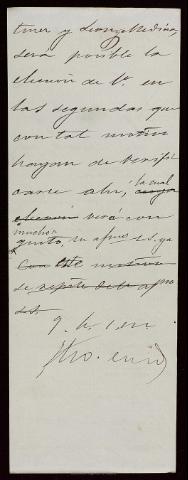 tiner y Leon y Medina,
será posible la
elección de V. en
las segundas que
con tal motivo
hayan de verifi
carse ahí, la cual cuya
elección verá con
mucho gusto, su afmo. s.s. ya
Con este motivo
se repite de V. afmo
s.s.
q. b. s. m.